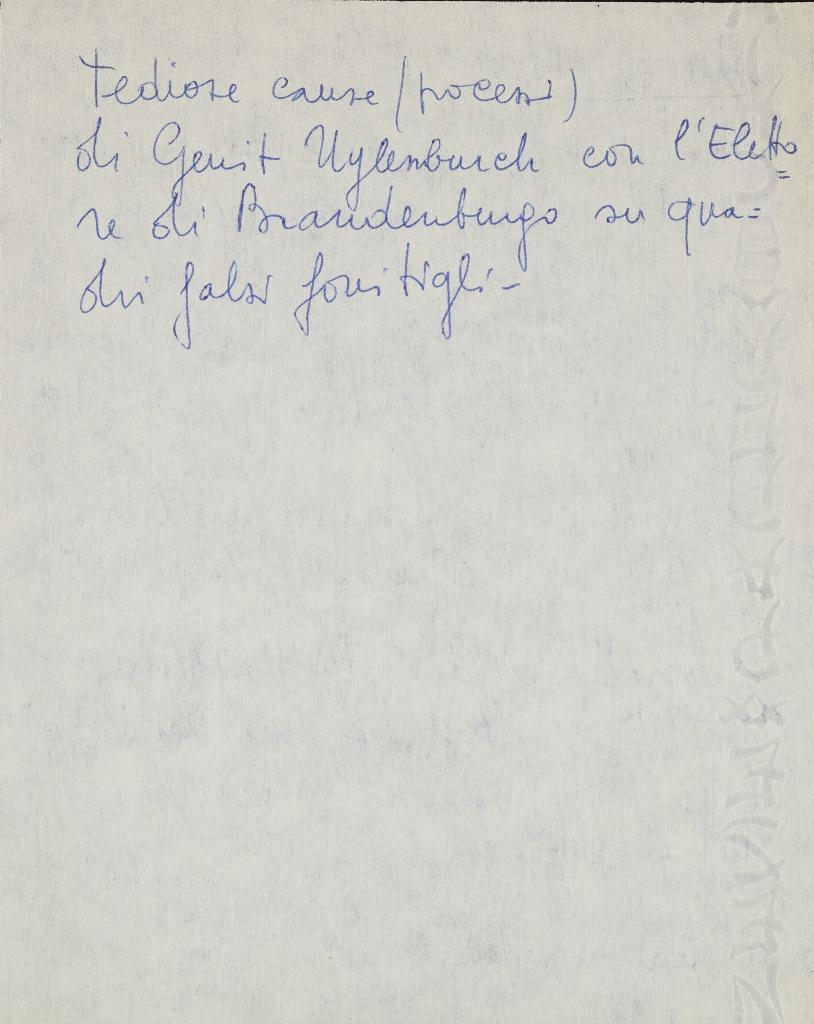 Tediose cause (processi)
di Gerrit Uylenburch con l'Eletto=
re di Brandenburgo su qua=
dri falsi fornitigli-